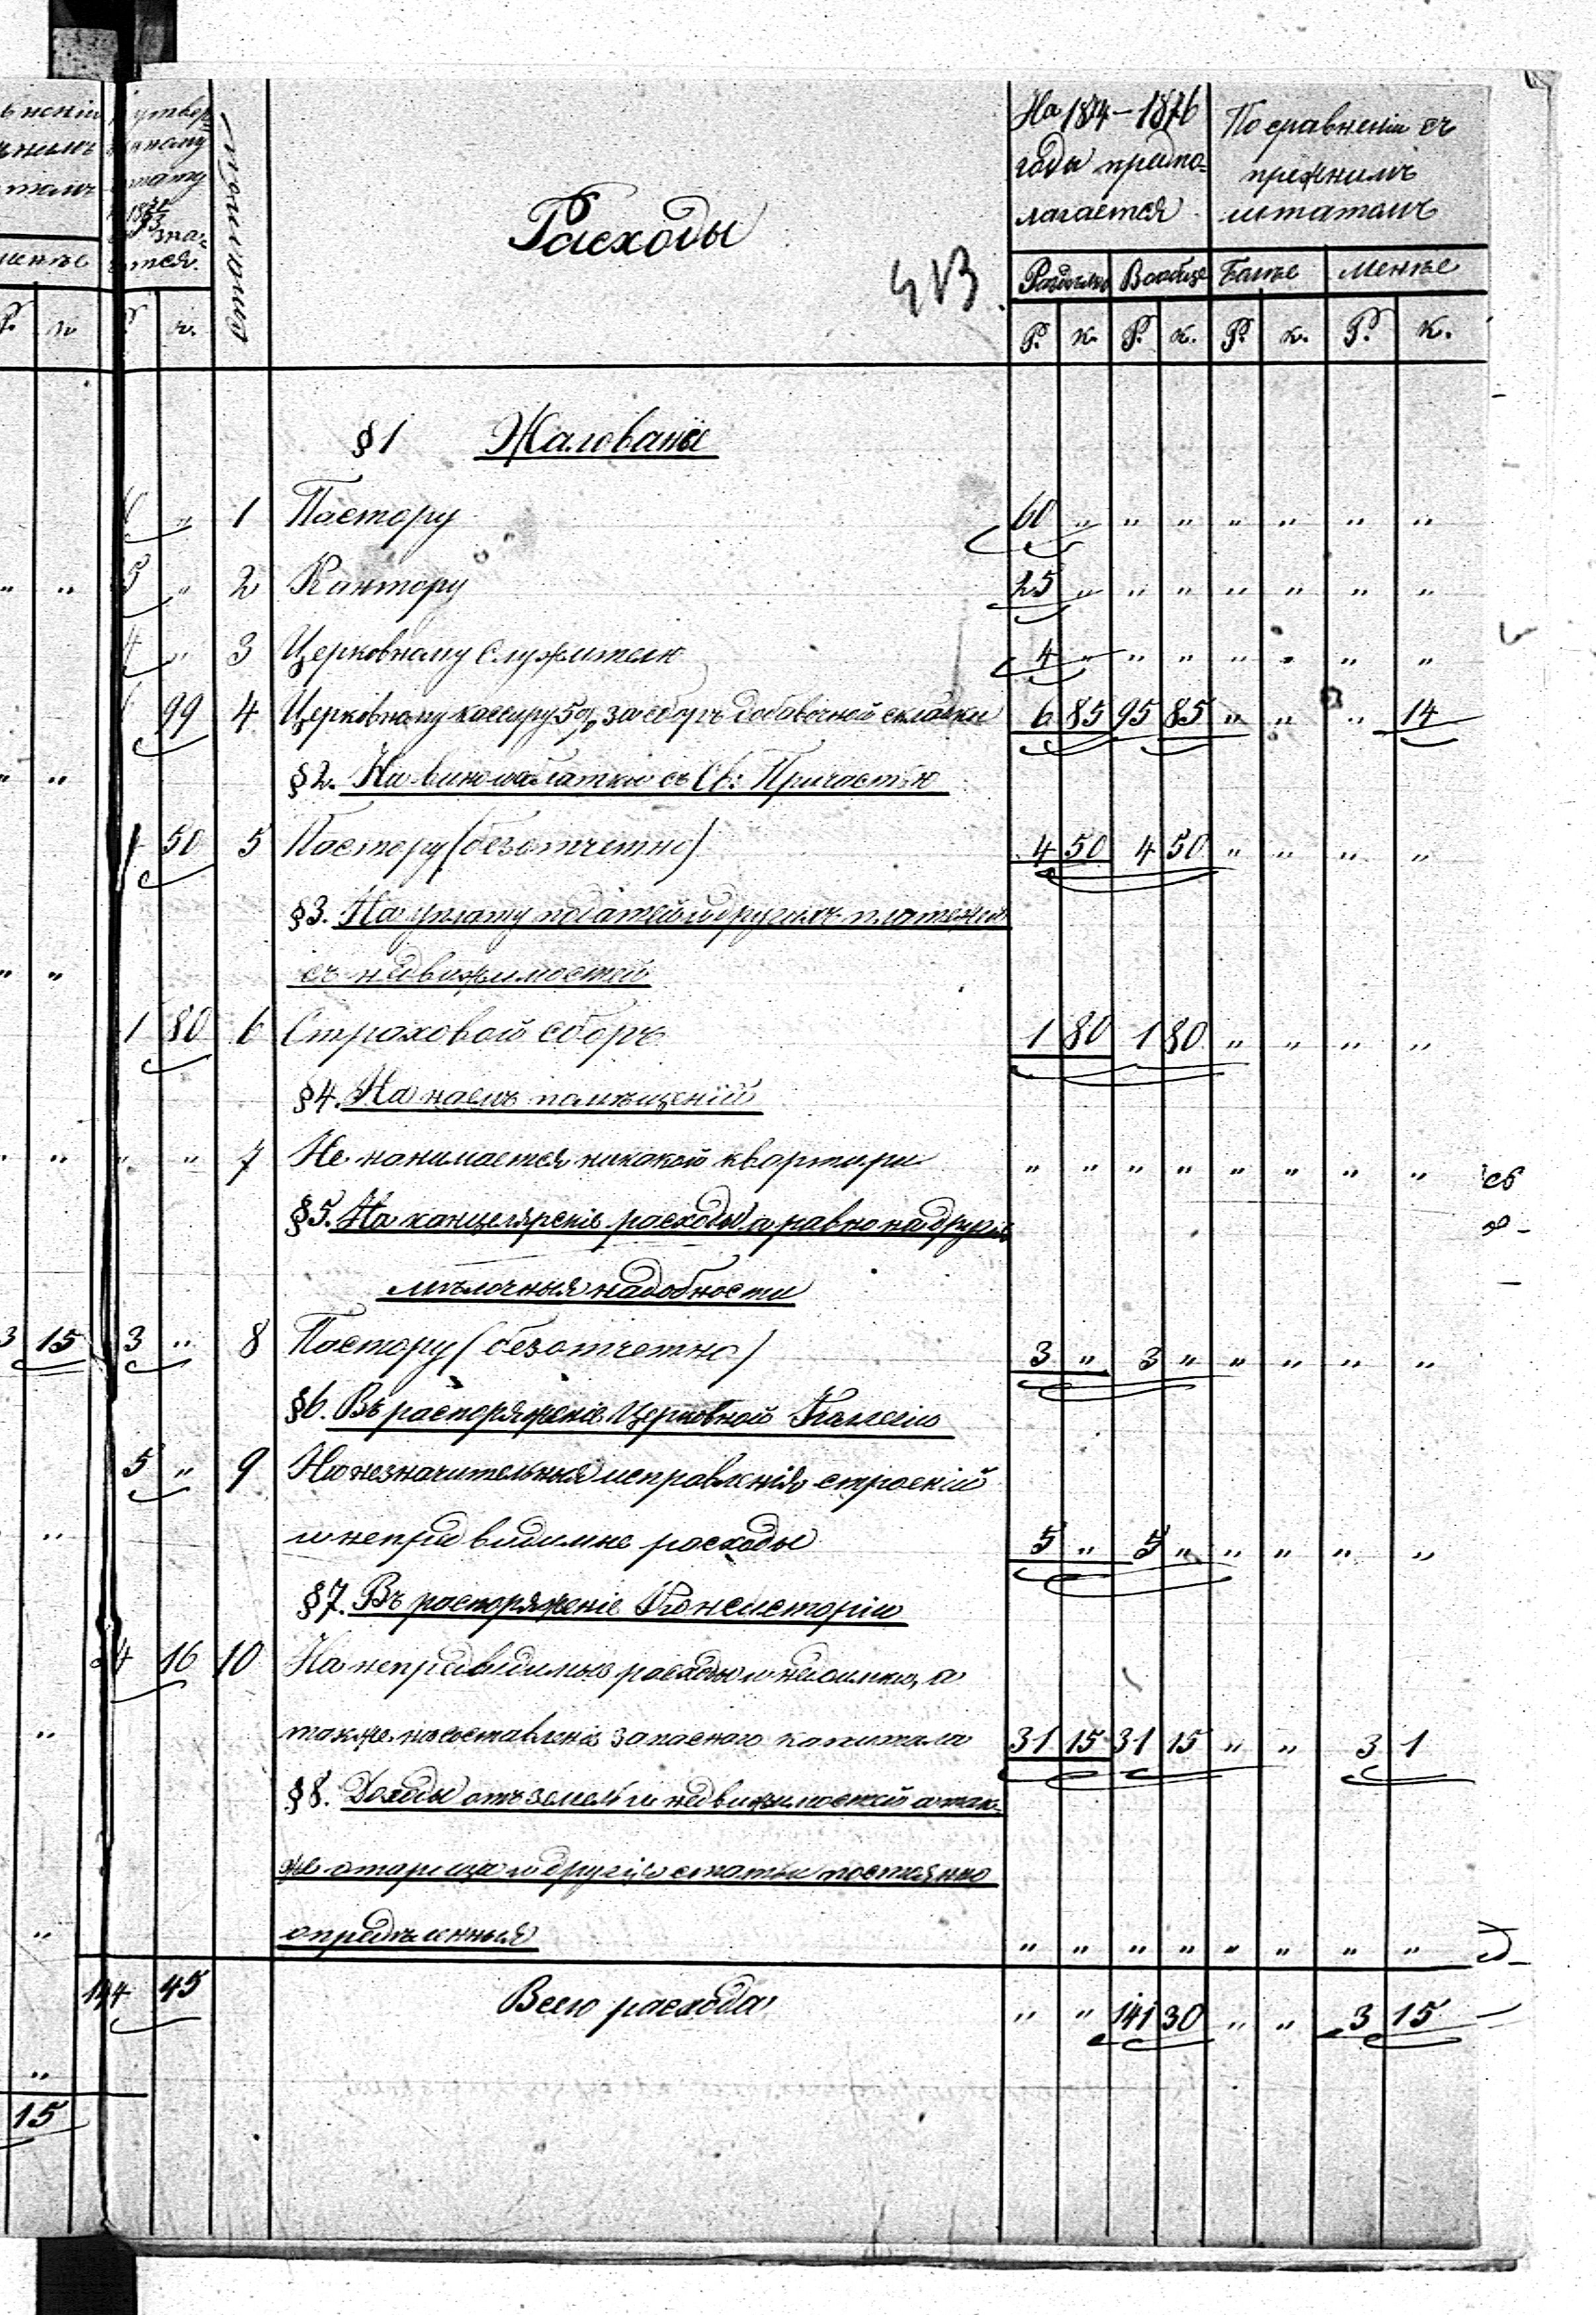 Расходы
На 1874–1876
годы предпо-
лагается
По сравненію съ
прежнимъ
штатомъ
Раздѣльно Вообще Болѣе Менѣе
Р. к. Р. к. Р. к. Р. к.
§ 1 Жалованье
„ 1 Пастору 60 „ „ „ „ „ „ „
„ 2 Кантору 25 „ „ „ „ „ „ „
„ 3 Церковному служителю 4 „ „ „ „ „ „ „
99 4 Церковному кассиру 5% за сборъ добавочной складки 6 85 95 85 „ „ „ 14
§ 2. На вино и облатки съ Св: Причастью
50 5 Пастору (безотчетно) 4 50 4 50 „ „ „ „
§ 3. На уплату податей и другихъ платежей
съ недвижимостей
1 80 6 Страховой сборъ 1 80 1 80 „ „ „ „
§ 4. На наемъ помѣщеній
„ „ 7 Не нанимается никакой квартири „ „ „ „ „ „ „ „
§ 5. На канцелярскіе расходы а равно на другія
мѣлочныя надобности
3 15 3 „ 8 Пастору (безотчетно) 3 „ 3 „ „ „ „ „
§ 6. Въ распоряженіе Церковной Коллегіи
5 „ 9 На незначительныя исправленія строеній
и непредвидимые расходы 5 „ 5 „ „ „ „ „
§ 7. Въ распоряженіе Консисторіи
34 16 10 На непредвидимые расходы и недоимки, а
также на составленіе запаснаго капитала 31 15 31 15 „ „ 3 1
§ 8. Доходы отъ земель и недвижимостей а так-
же и другія статьи постоянно
опредѣленныя „ „ „ „ „ „ „ „
144 45 Всего расхода „ „ 141 30 „ „ 3 15
15